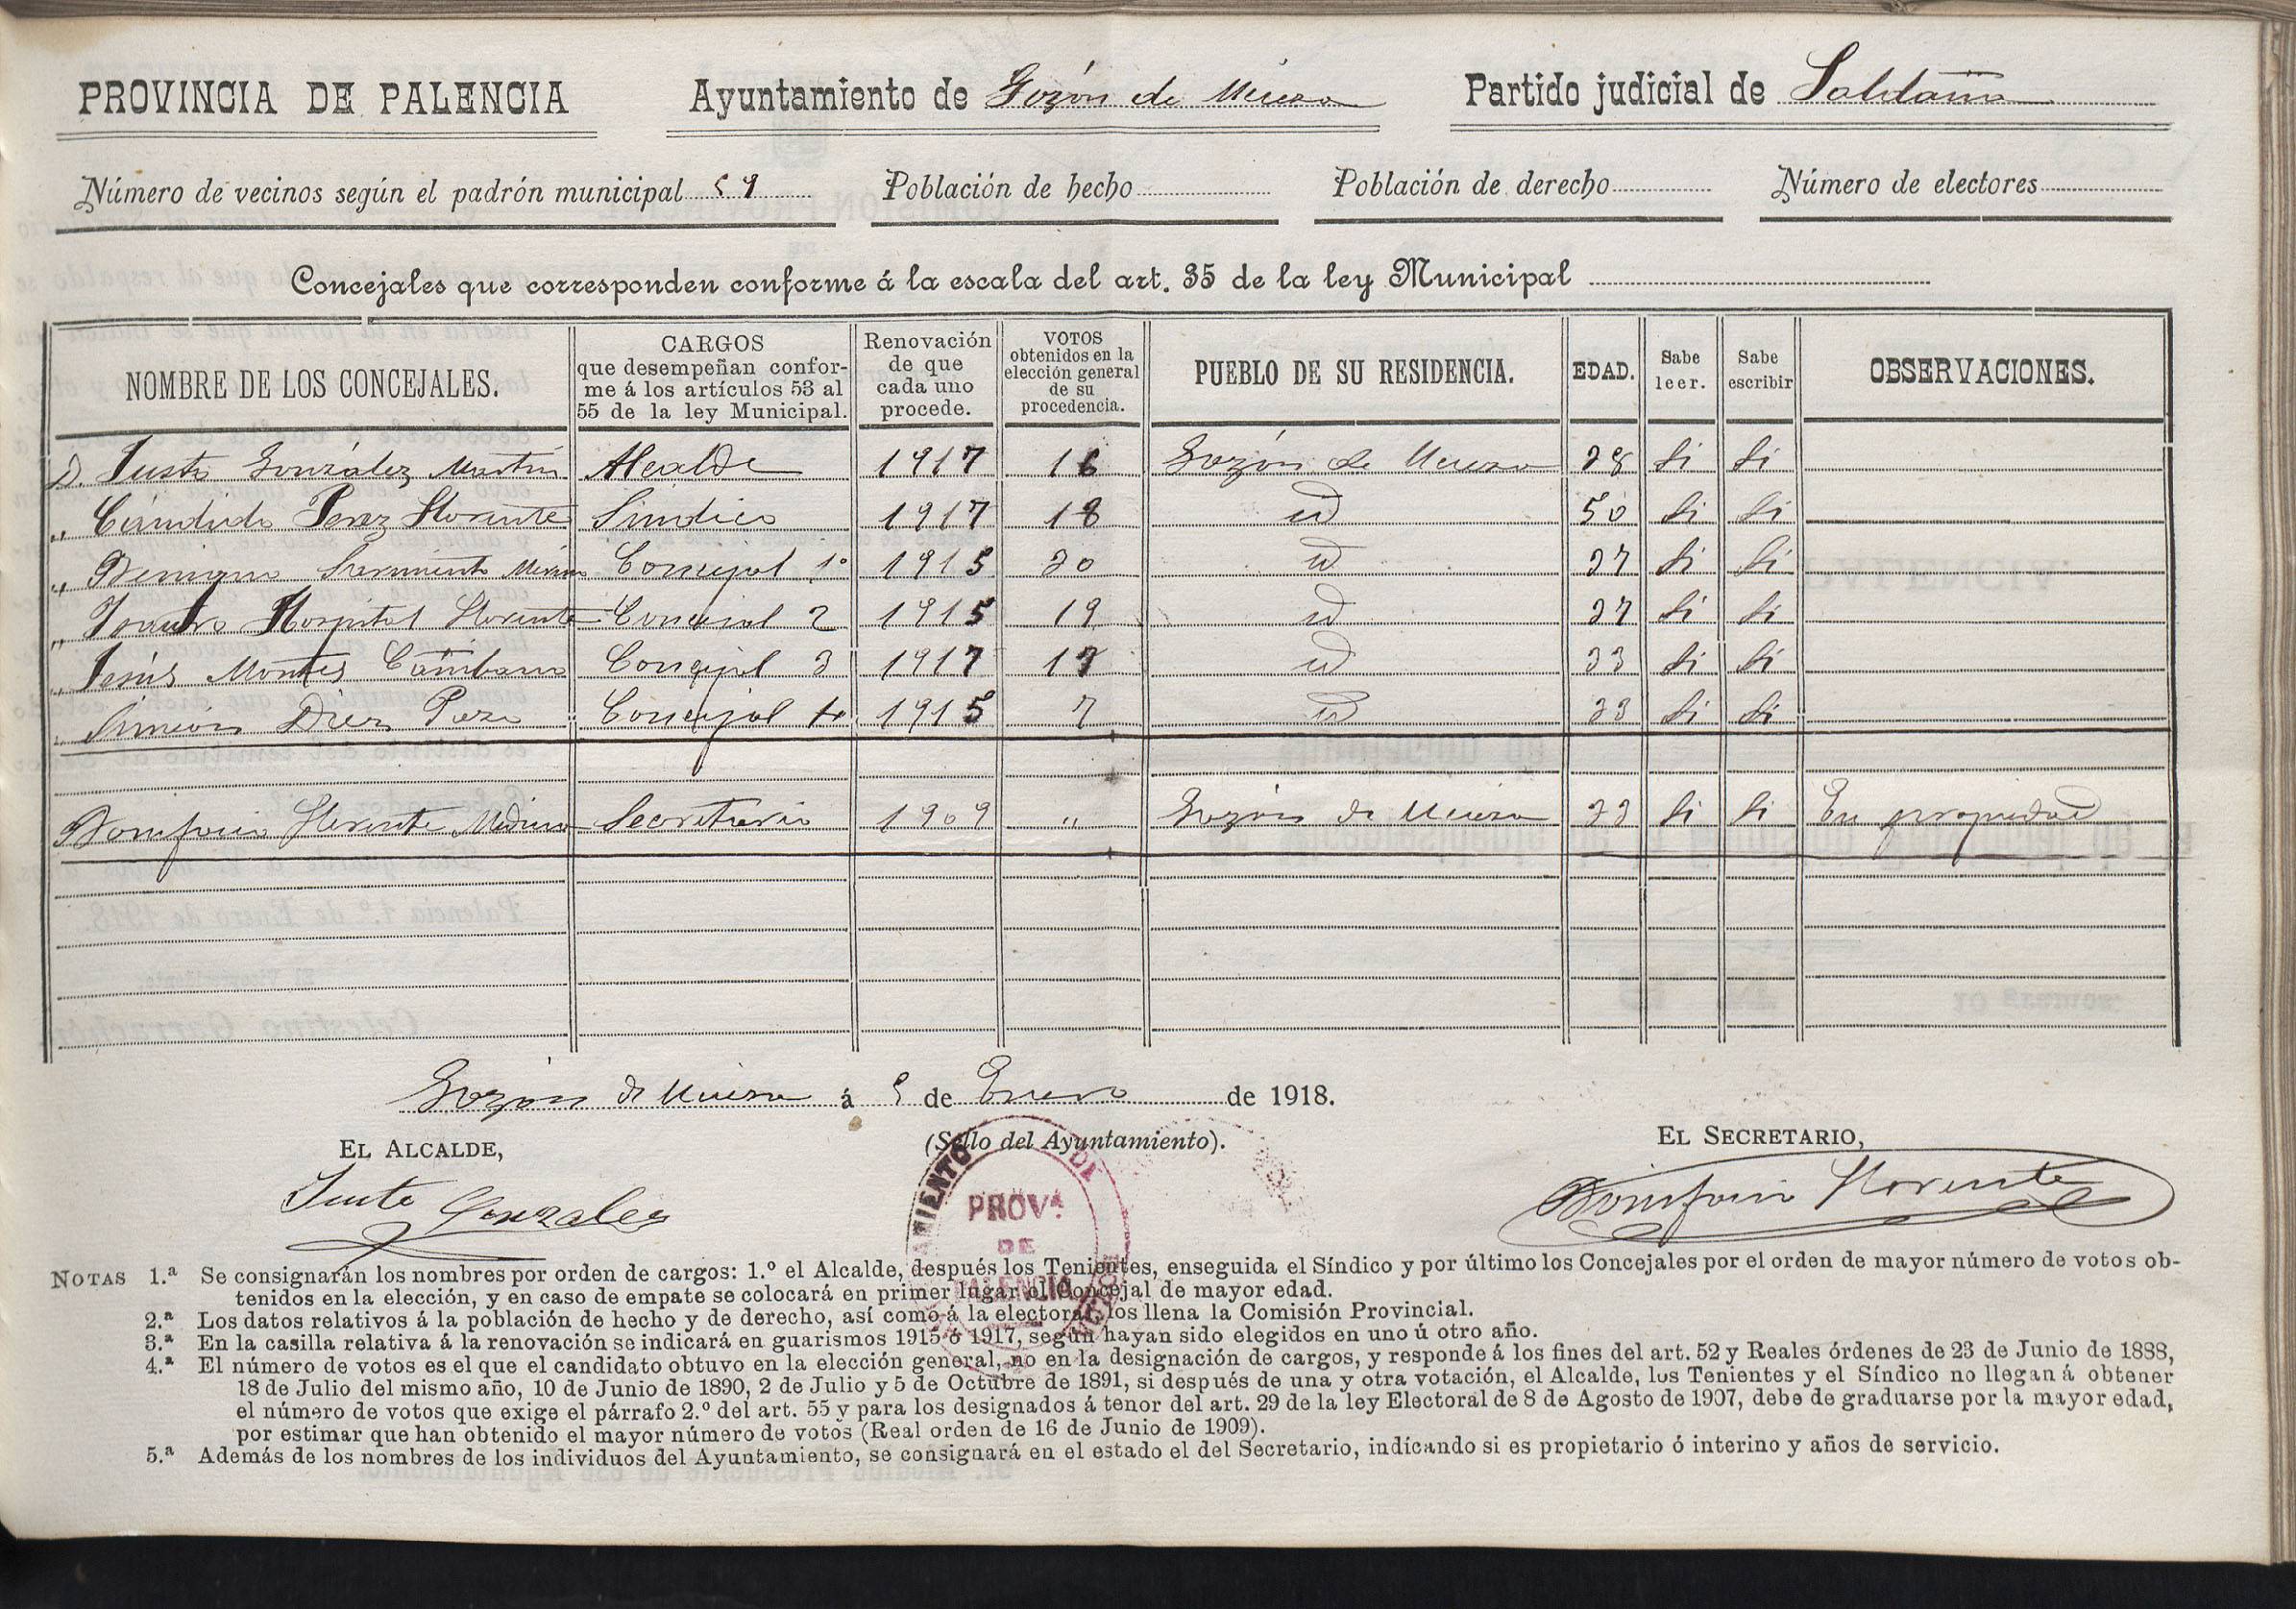 PROVINCIA DE PALENCIA Ayuntamiento de Gozón de Ucieza Partido judicial de Saldaña
Número de vecinos según el padrón municipal 59 Población de hecho Población de derecho Número de electores
Concejales que corresponden conforme á la escala del art. 35 de la ley Municipal
NOMBRE DE LOS CONCEJALES. CARGOS que desempeñan conforme á los artículos 53 al 55 de la ley Municipal. Renovación de que cada uno procede. VOTOS obtenidos en la elección general de su procedencia. PUEBLO DE SU RESIDENCIA. EDAD. Sabe leer. Sabe escribir OBSERVACIONES.
D. Justo González Martín Alcalde 1917 16 Gozón de Ucieza 38 Si Si
„ Cándido Perez Llorente Sindico 1917 18 id 50 Si Si
„ Benigno Sarmiento Concejal 1º 1915 20 id 37 Si Si
„ Hospital Llorente Concejal 2 1915 19 id 37 Si Si
„ Jesús Montes Concejal 3 1917 17 id 33 Si Si
„ Simeón Diez Concejal 4 1915 7 id 33 Si Si
Bonifacio Llorente Medina Secretario 1909 „ Gozón de Ucieza 33 Si Si En propiedad
Gozón de Ucieza á 5 de Enero de 1918.
EL ALCALDE, (Sello del Ayuntamiento). EL SECRETARIO,
Justo Gonzalez Bonifacio Llorente
PROVª
DE
PALENCIA
NOTAS 1.ª Se consignarán los nombres por orden de cargos: 1.º el Alcalde, después los Tenientes, enseguida el Síndico y por último los Concejales por el orden de mayor número de votos ob-
tenidos en la elección, y en caso de empate se colocará en primer lugar el Concejal de mayor edad.
2.ª Los datos relativos á la población de hecho y de derecho, así como á la electoral, los llena la Comisión Provincial.
3.ª En la casilla relativa á la renovación se indicará en guarismos 1915 ó 1917, según hayan sido elegidos en uno ú otro año.
4.ª El número de votos es el que el candidato obtuvo en la elección general, no en la designación de cargos, y responde á los fines del art. 52 y Reales órdenes de 23 de Junio de 1888,
18 de Julio del mismo año, 10 de Junio de 1890, 2 de Julio y 5 de Octubre de 1891, si después de una y otra votación, el Alcalde, los Tenientes y el Síndico no llegan á obtener
el número de votos que exige el párrafo 2.º del art. 55 y para los designados á tenor del art. 29 de la ley Electoral de 8 de Agosto de 1907, debe de graduarse por la mayor edad,
por estimar que han obtenido el mayor número de votos (Real orden de 16 de Junio de 1909).
5.ª Además de los nombres de los individuos del Ayuntamiento, se consignará en el estado el del Secretario, indicando si es propietario ó interino y años de servicio.